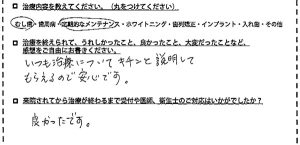 □ 治療内容を教えてください。(丸をつけてください)
むし歯・歯周病・定期的なメンテナンス・ホワイトニング・歯列矯正・インプラント・入れ歯・その他
□ 治療を終えられて、うれしかったこと、良かったこと、大変だったことなど、
感想をご自由にお書きください。
いつも治療について キチンと説明して
もらえるので安心です。
□ 来院されてから治療が終わるまで受付や医師、衛生士のご対応はいかがでしたか?
良かったです。